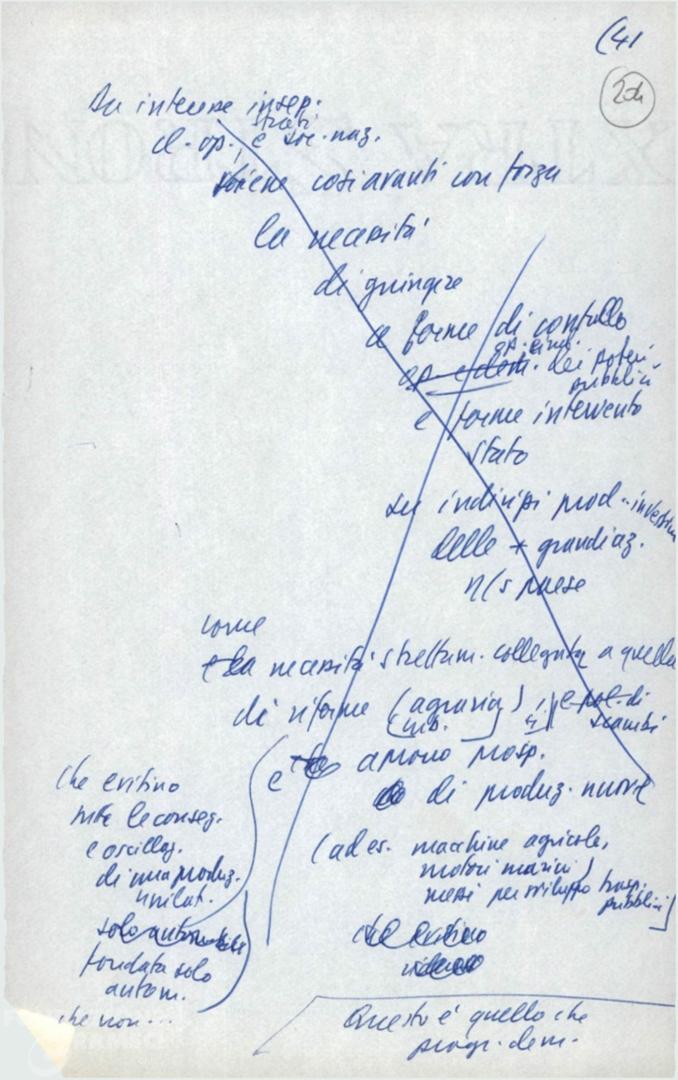 (41
204
Da interesse insep.
strati
cl. op. e soc. naz.
viene così avanti con forza
la necessità
di giungere
a forme di controllo
op. e
op. e dem. dei poteri
pubblici
e forme intervento
stato
su indirizzi prod. - investim
delle + grandi az.
n/s paese
come
e la necessità strettam. collegata a quella
di riforme (agraria)
e pol. di
scambi
e
di produz. nuove
(ad es. macchine agricole,
motori marini)
mezzi per sviluppo trasp.
pubblici)
che evitino
che evitino
tutte le conseg.
e oscillaz.
di una produz.
unilat.
solo automobile
fondata solo
autom.
che non ...
Questo è quello che
progr. dem.